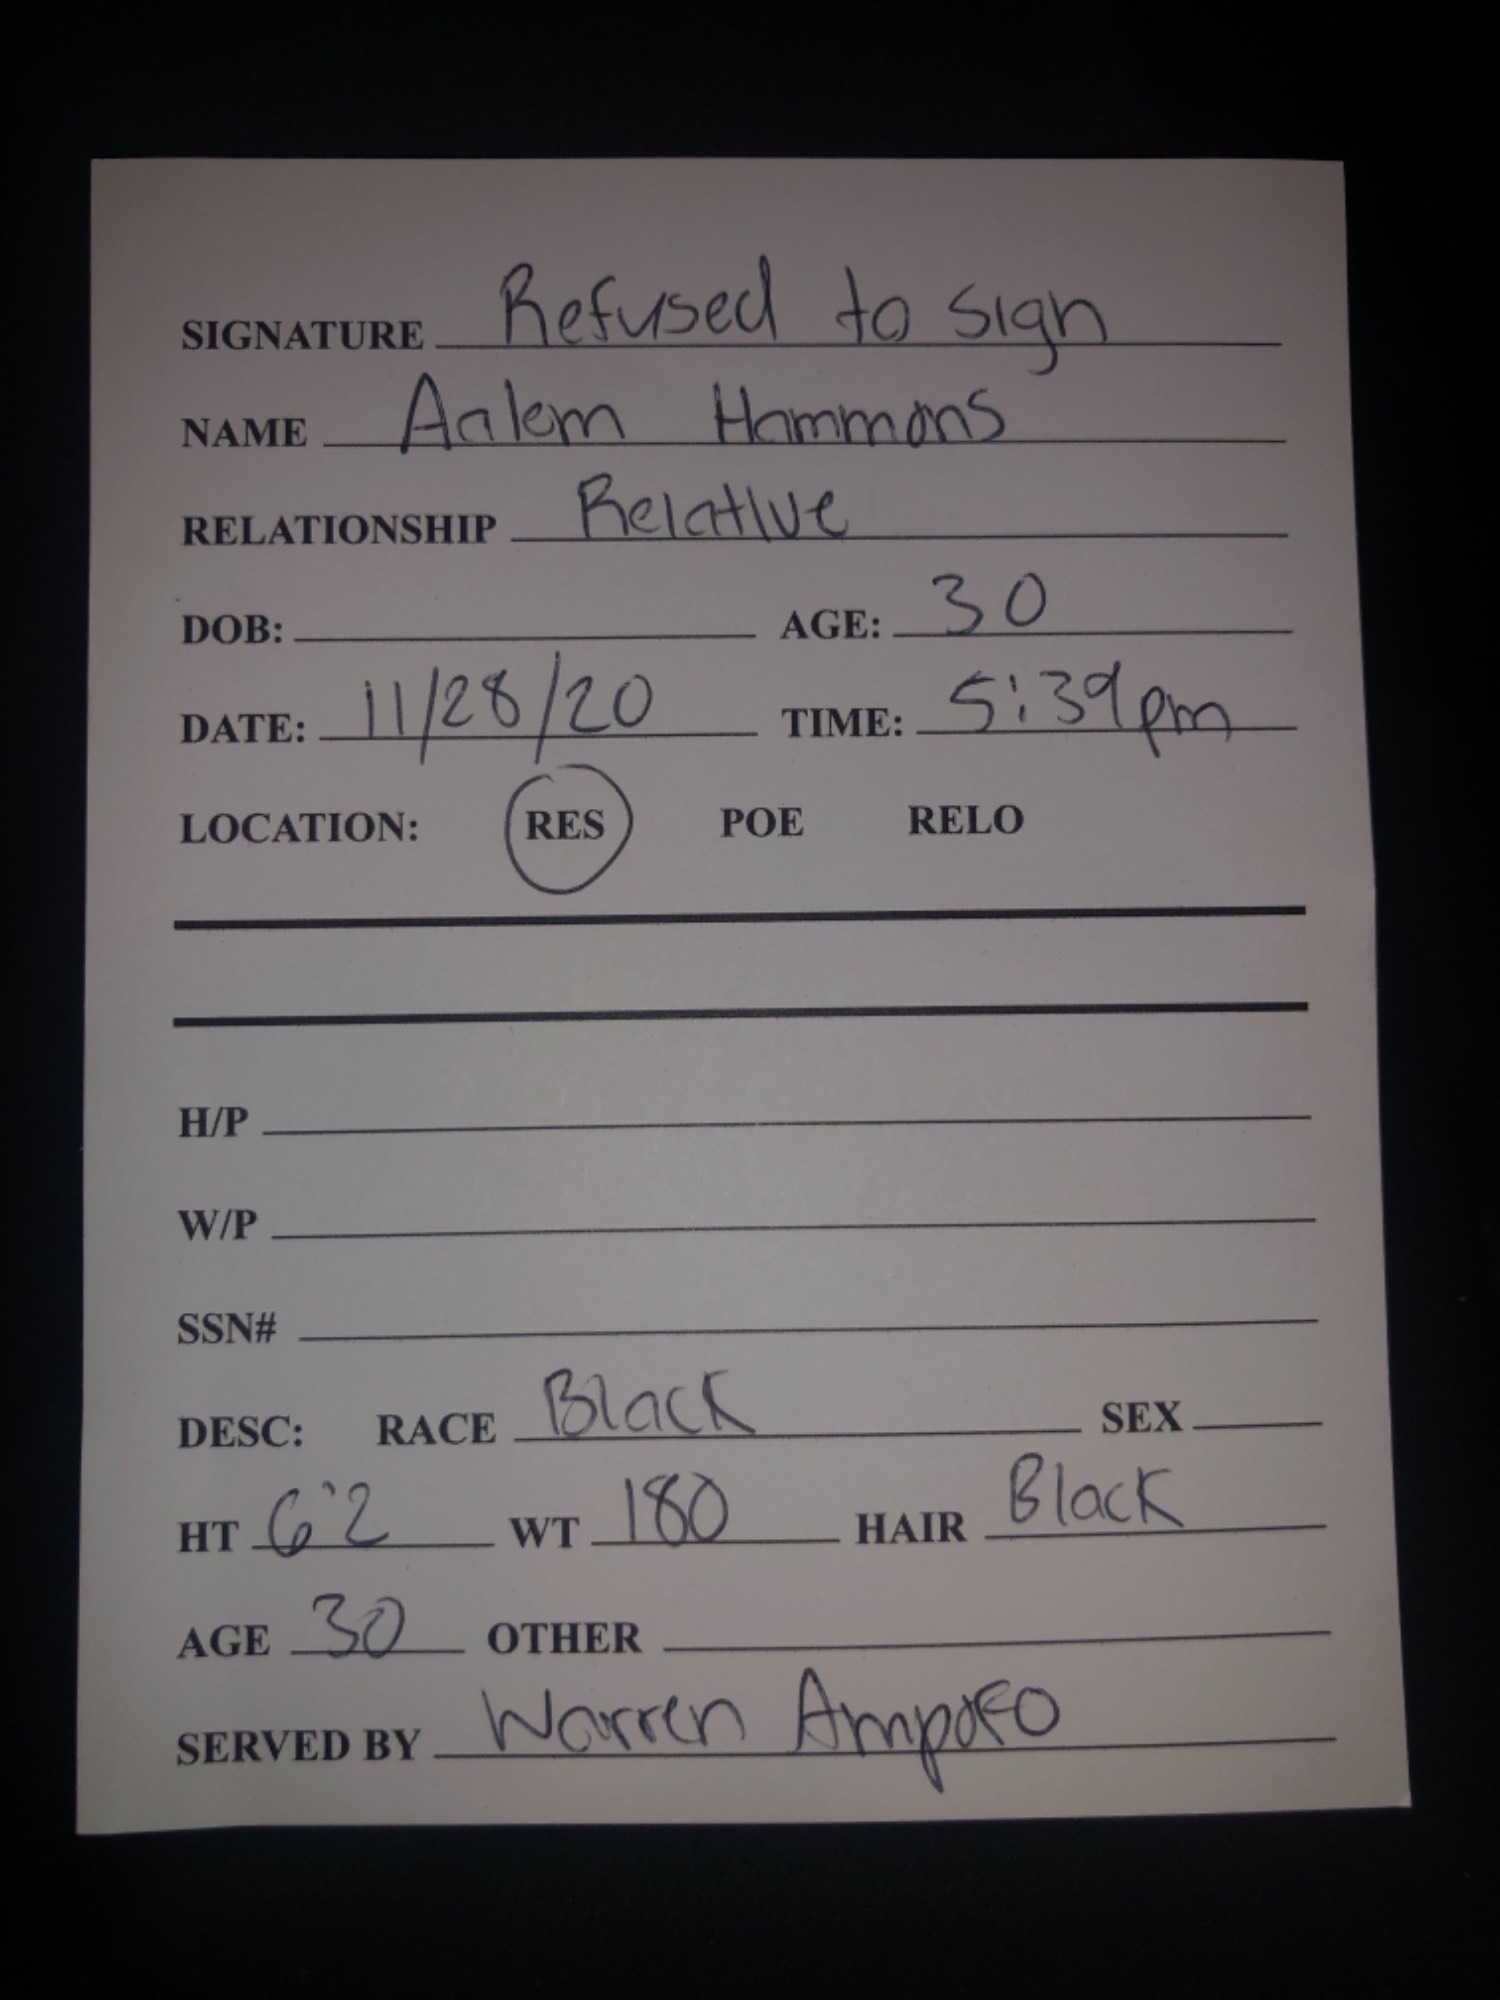 SIGNATURE Refused to sign
NAME Aalem Hammons
RELATIONSHIP Relative
DOB: AGE: 30
DATE: 11/28/20 TIME: 5:39pm
LOCATION: RES POE RELO
H/P
W/P
SSN#
DESC: RACE Black SEX
HT 6'2 WT 180 HAIR Black
AGE 30 OTHER
SERVED BY Warren Ampofo